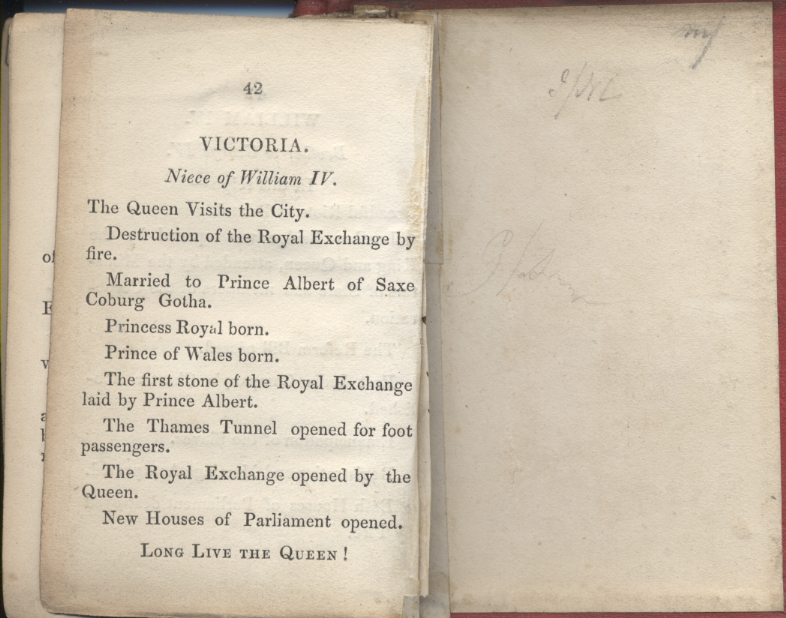 42
VICTORIA.
Niece of William IV.
The Queen Visits the City.
Destruction of the Royal Exchange by
fire.
Married to Prince Albert of Saxe
Coburg Gotha.
Princess Royal born.
Prince of Wales born.
The first stone of the Royal Exchange
laid by Prince Albert.
The Thames Tunnel opened for foot
passengers.
The Royal Exchange opened by the
Queen.
New Houses of Parliament opened.
LONG LIVE THE QUEEN!